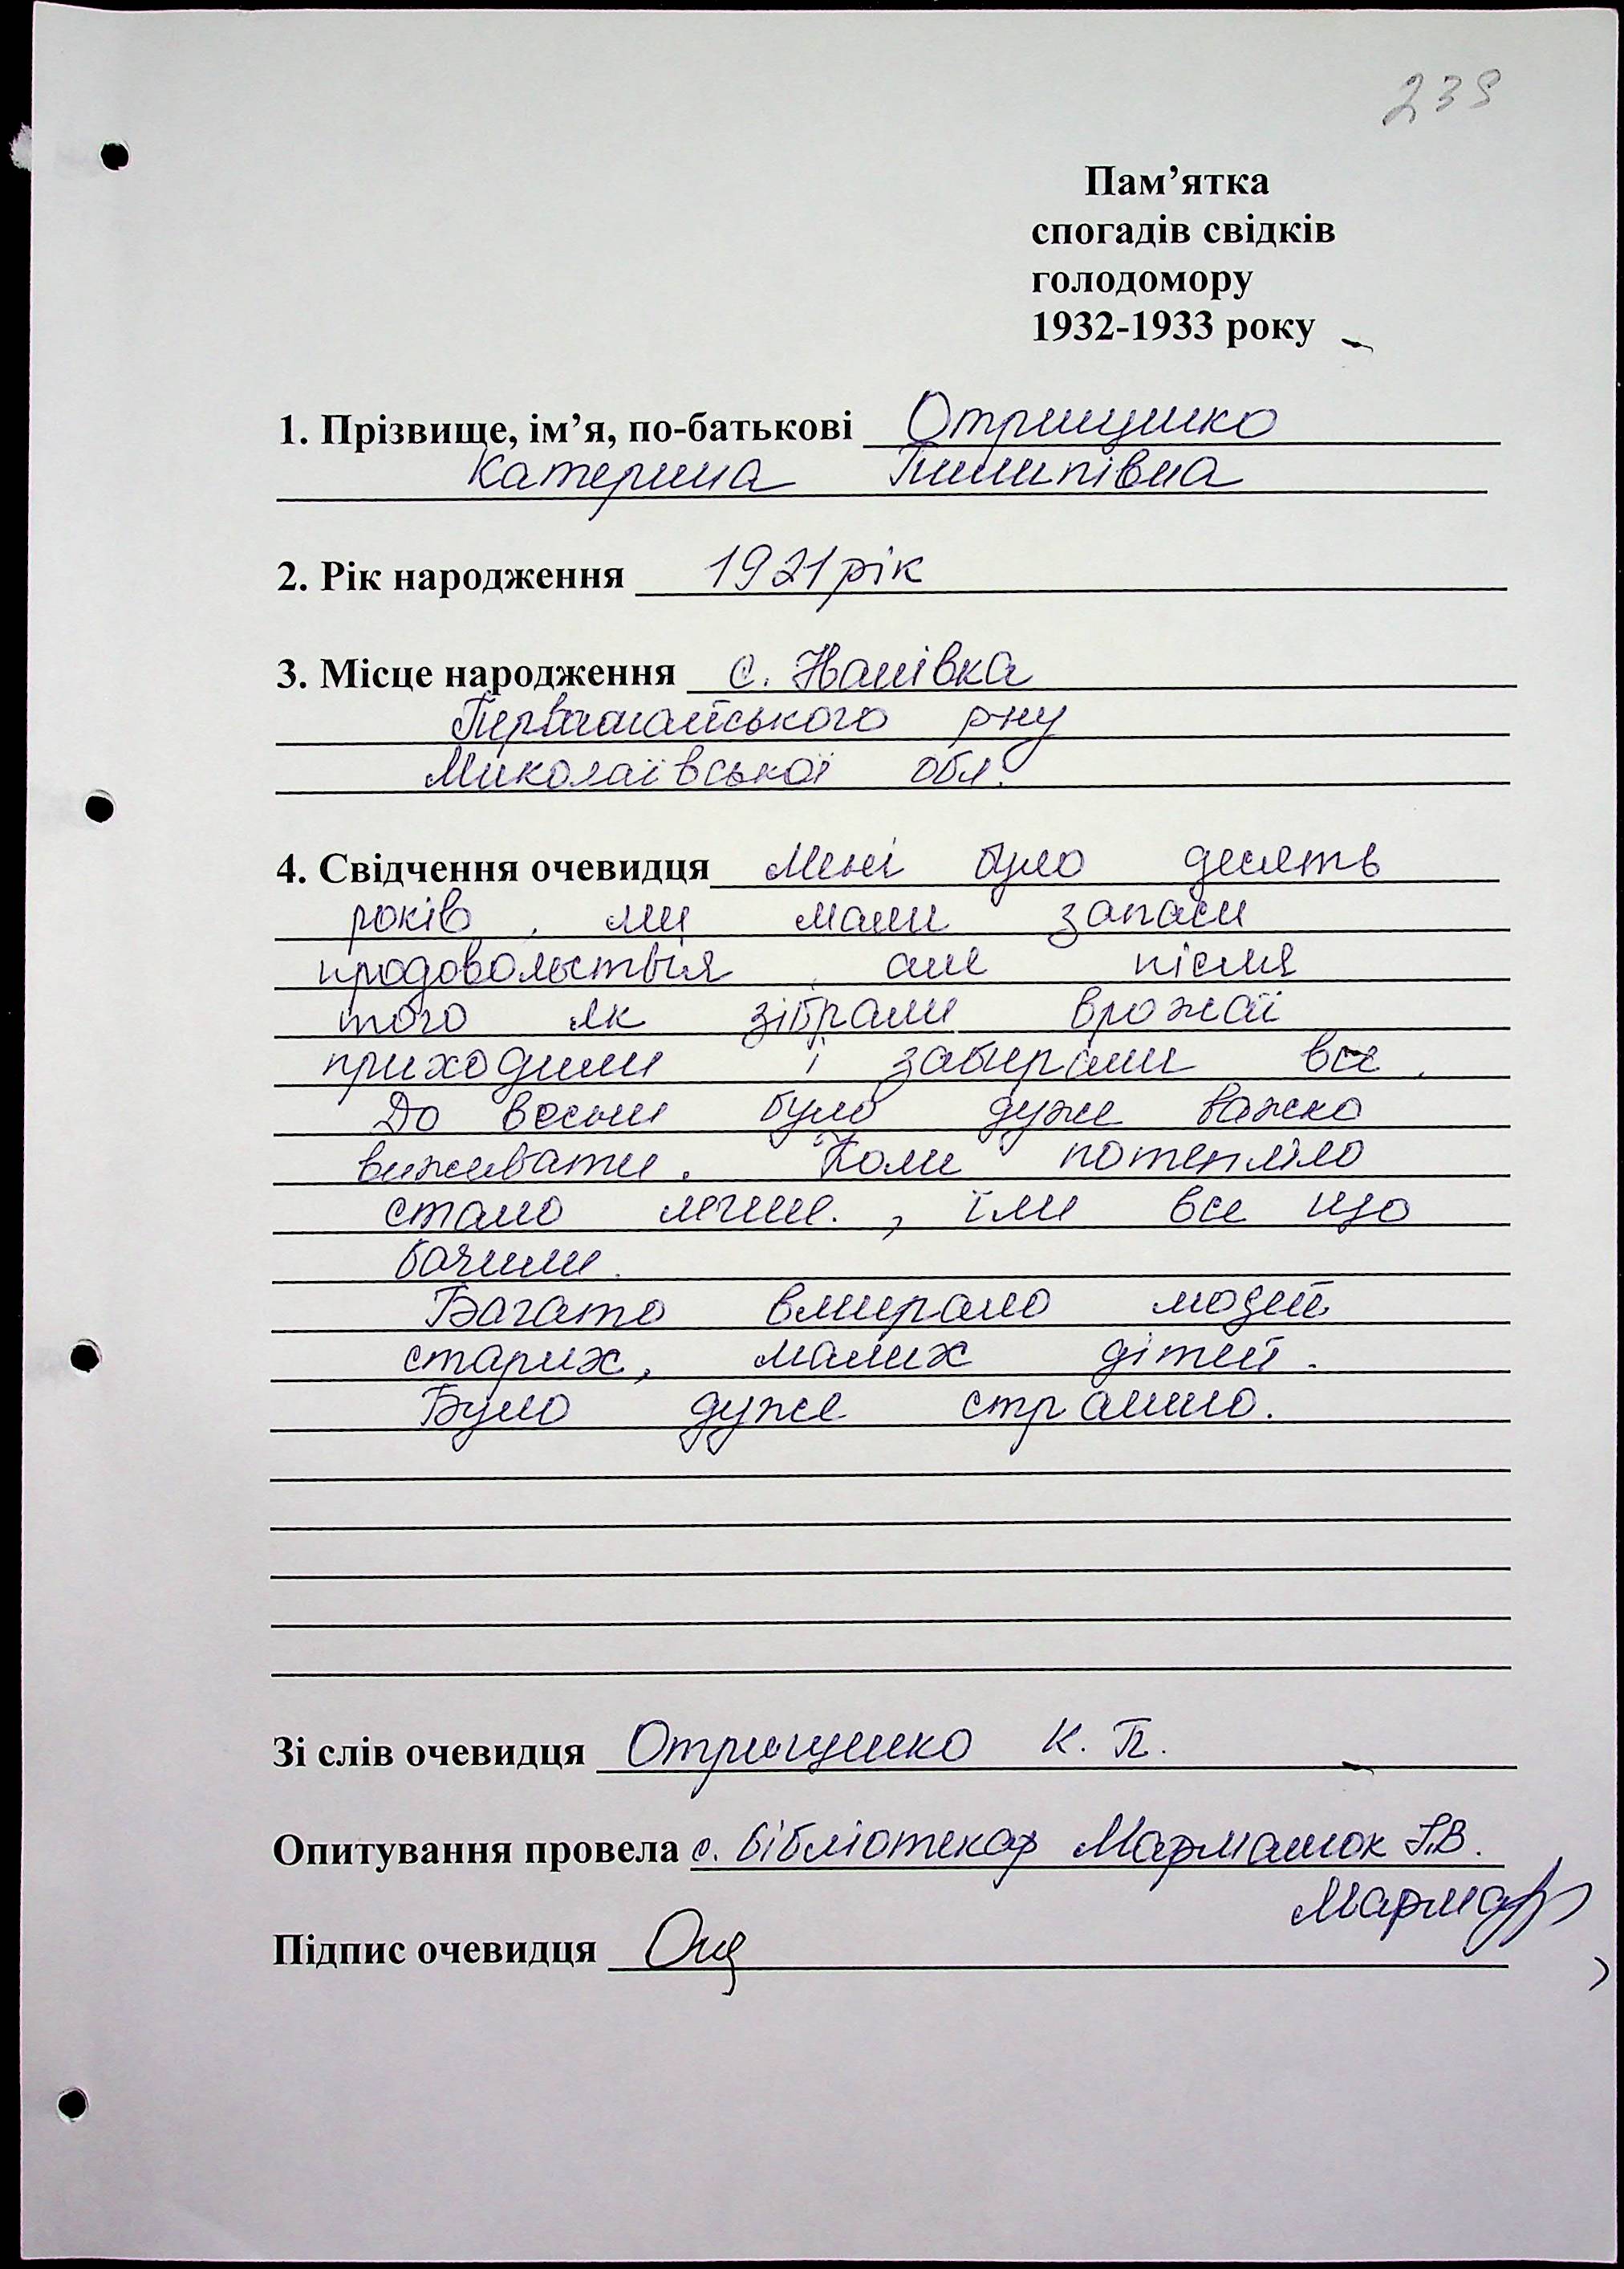 239
Пам’ятка
спогадів свідків
голодомору
1932-1933 року
1. Прізвище, ім’я, по-батькові Отрищенко
Катерина Пилипівна
2. Рік народження 1921 рік
3. Місце народження с.
Первомайського р-ну
Миколаївської обл.
4. Свідчення очевидця Мені було десять
років, ми мали запаси
продовольствія, але після
того як зібрали врожаї
приходили і забирали все.
До весни було дуже важко
виживати. Коли потепліло
стало легше., їли все що
бачили.
Багато вмирало людей
старих, малих дітей.
Було дуже страшно.
Зі слів очевидця Отрищенко К. П.
Опитування провела с. бібліотекар Мармалюк Г.В.
Підпис очевидця